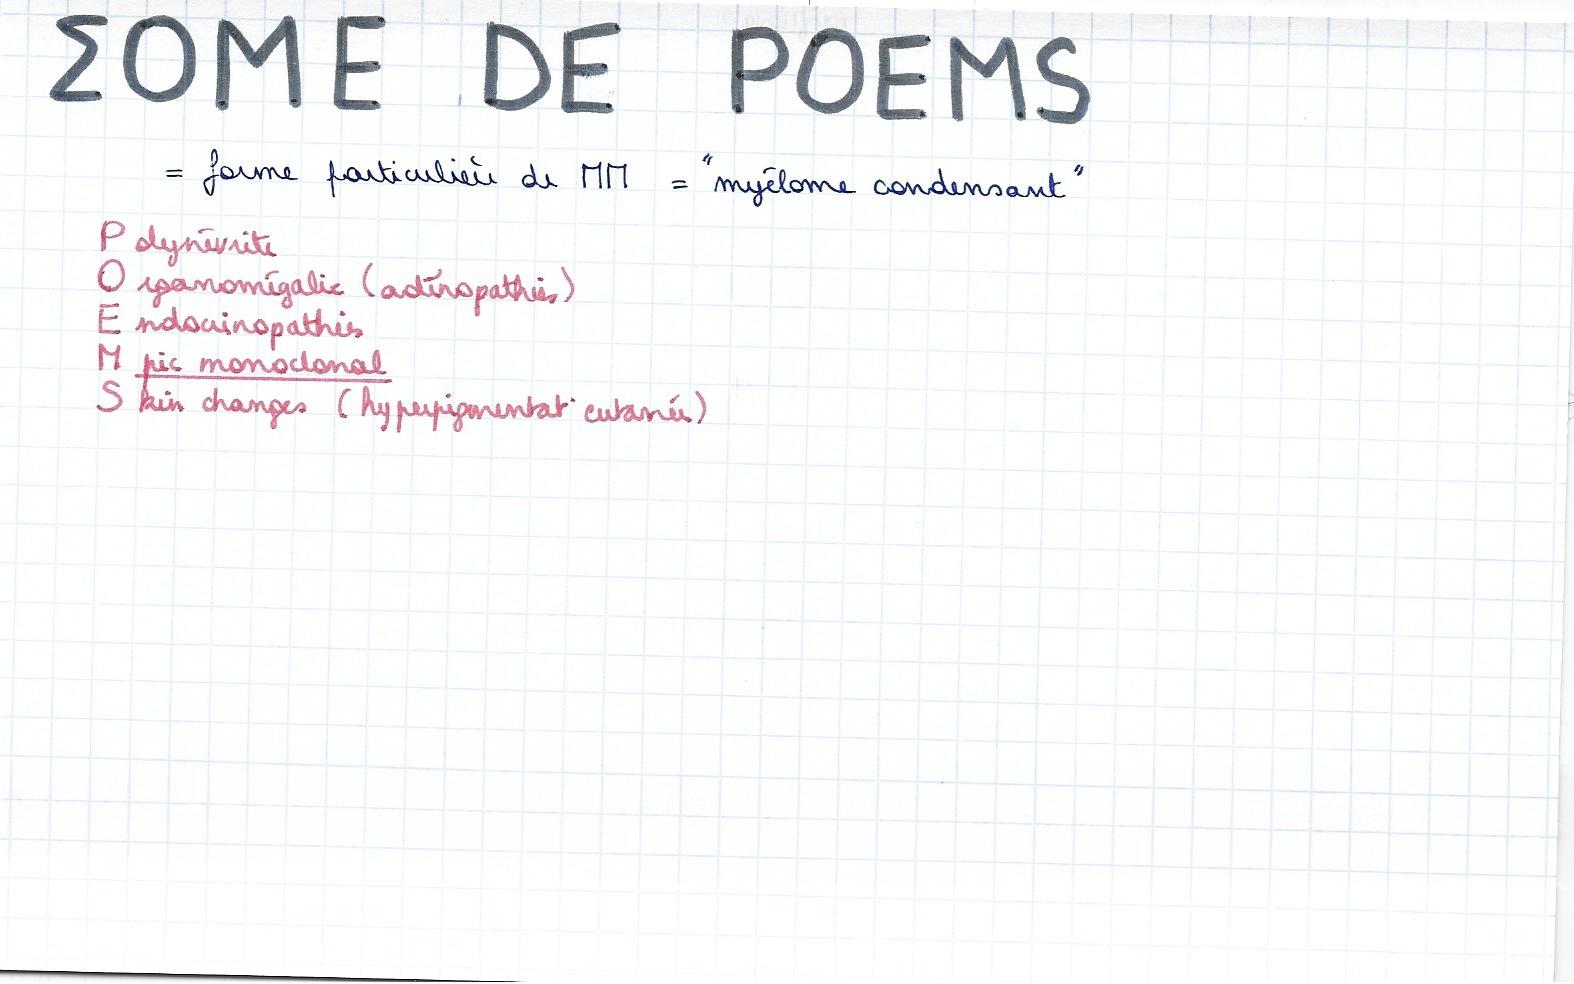 ΣOME DE POEMS
= forme particulière de MM = "myélome condensant"
Polynévrite
Organomégalie (adénopathies)
Endocrinopathies
M pic monoclonal
Skin changes (hyperpigmentat° cutanée)